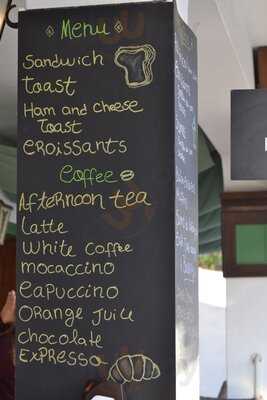 Menu
Sandwich
Toast
Ham and cheese
Toast
Croissants
Coffee
Afternoon tea
Latte
White Coffee
mocaccino
Capuccino
Orange Juice
chocolate
Expresso